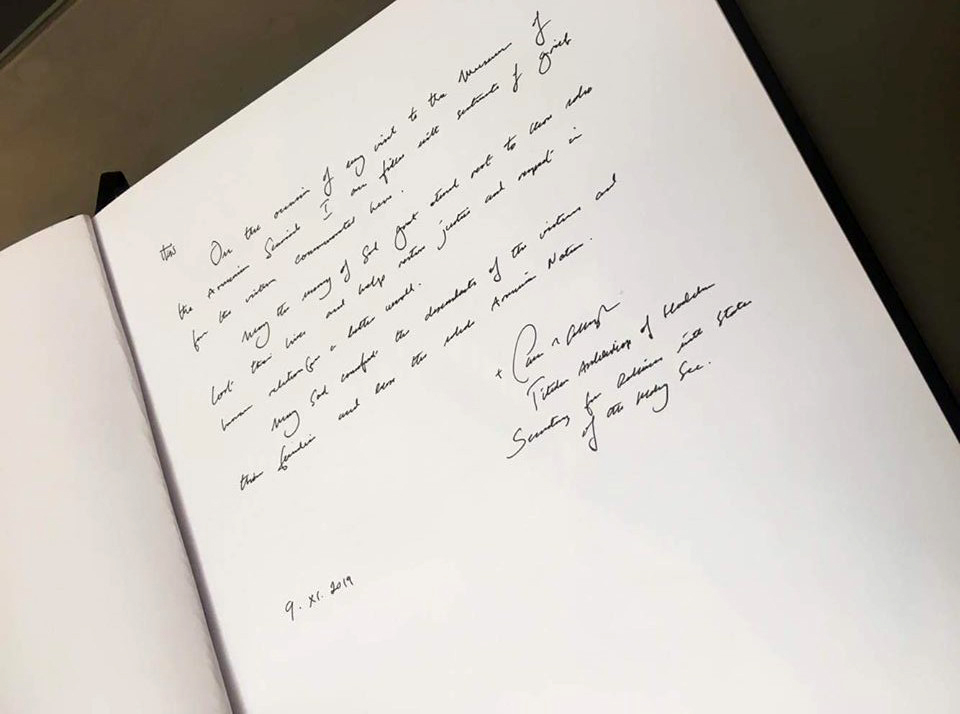 On the occasion of my visit to the Museum of
the Armenian Genocide I am filled with sentiments of grief
for the victims commemorated here.
May the mercy of God grant eternal rest to those who
lost their lives and help restore justice and respect in
human relations for a better world.
May God comfort the descendants of the victims and
their families and bless the whole Armenian Nation.
+ Paul R Gallagher
Titular Archbishop of Hodelm
Secretary for Relations with States
of the Holy See.
9. XI. 2019